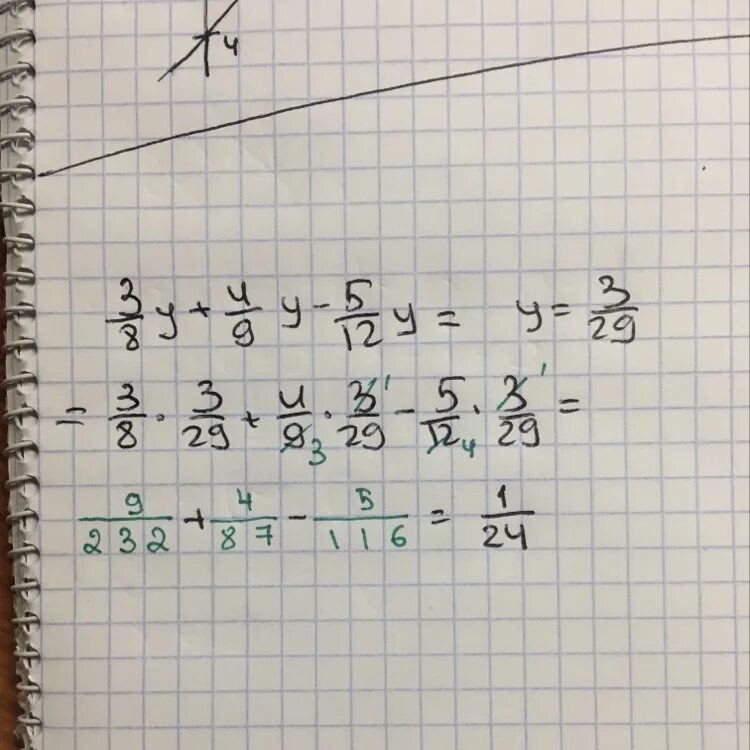 4
3/8 y + 4/9 y - 5/12 y = y = 3/29
= 3/8 · 3/29 + 4/9 3 · 3 1/29 - 5/12 4 · 3 1/29 =
9/232 + 4/87 - 5/116 = 1/24